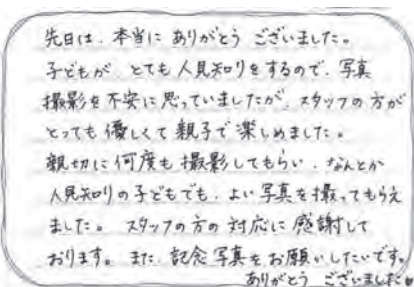 先日は、本当に ありがとう ございました。
子どもが、とても人見知りをするので、写真
撮影を不安に思っていましたが、スタッフの方が
とっても優しくて親子で楽しめました。
親切に何度も撮影してもらい、なんとか
人見知りの子どもでも、よい写真を撮ってもらえ
ました。スタッフの方の対応に感謝して
おります。また、記念写真をお願いしたいです。
ありがとう ございました♥